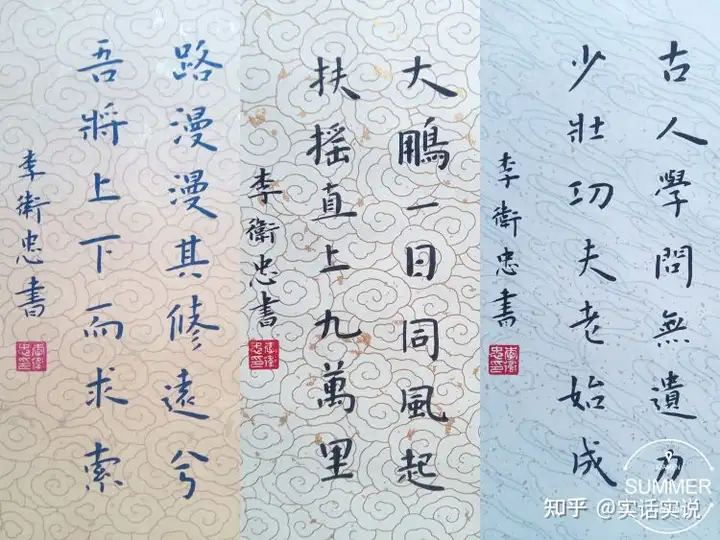 路漫漫其修遠兮
吾將上下而求索
李衛忠書
大鵬一日同風起
扶摇直上九萬里
李衛忠書
古人學問無遺力
少壯功夫老始成
李衛忠書
SUMMER
知乎 @实话实说